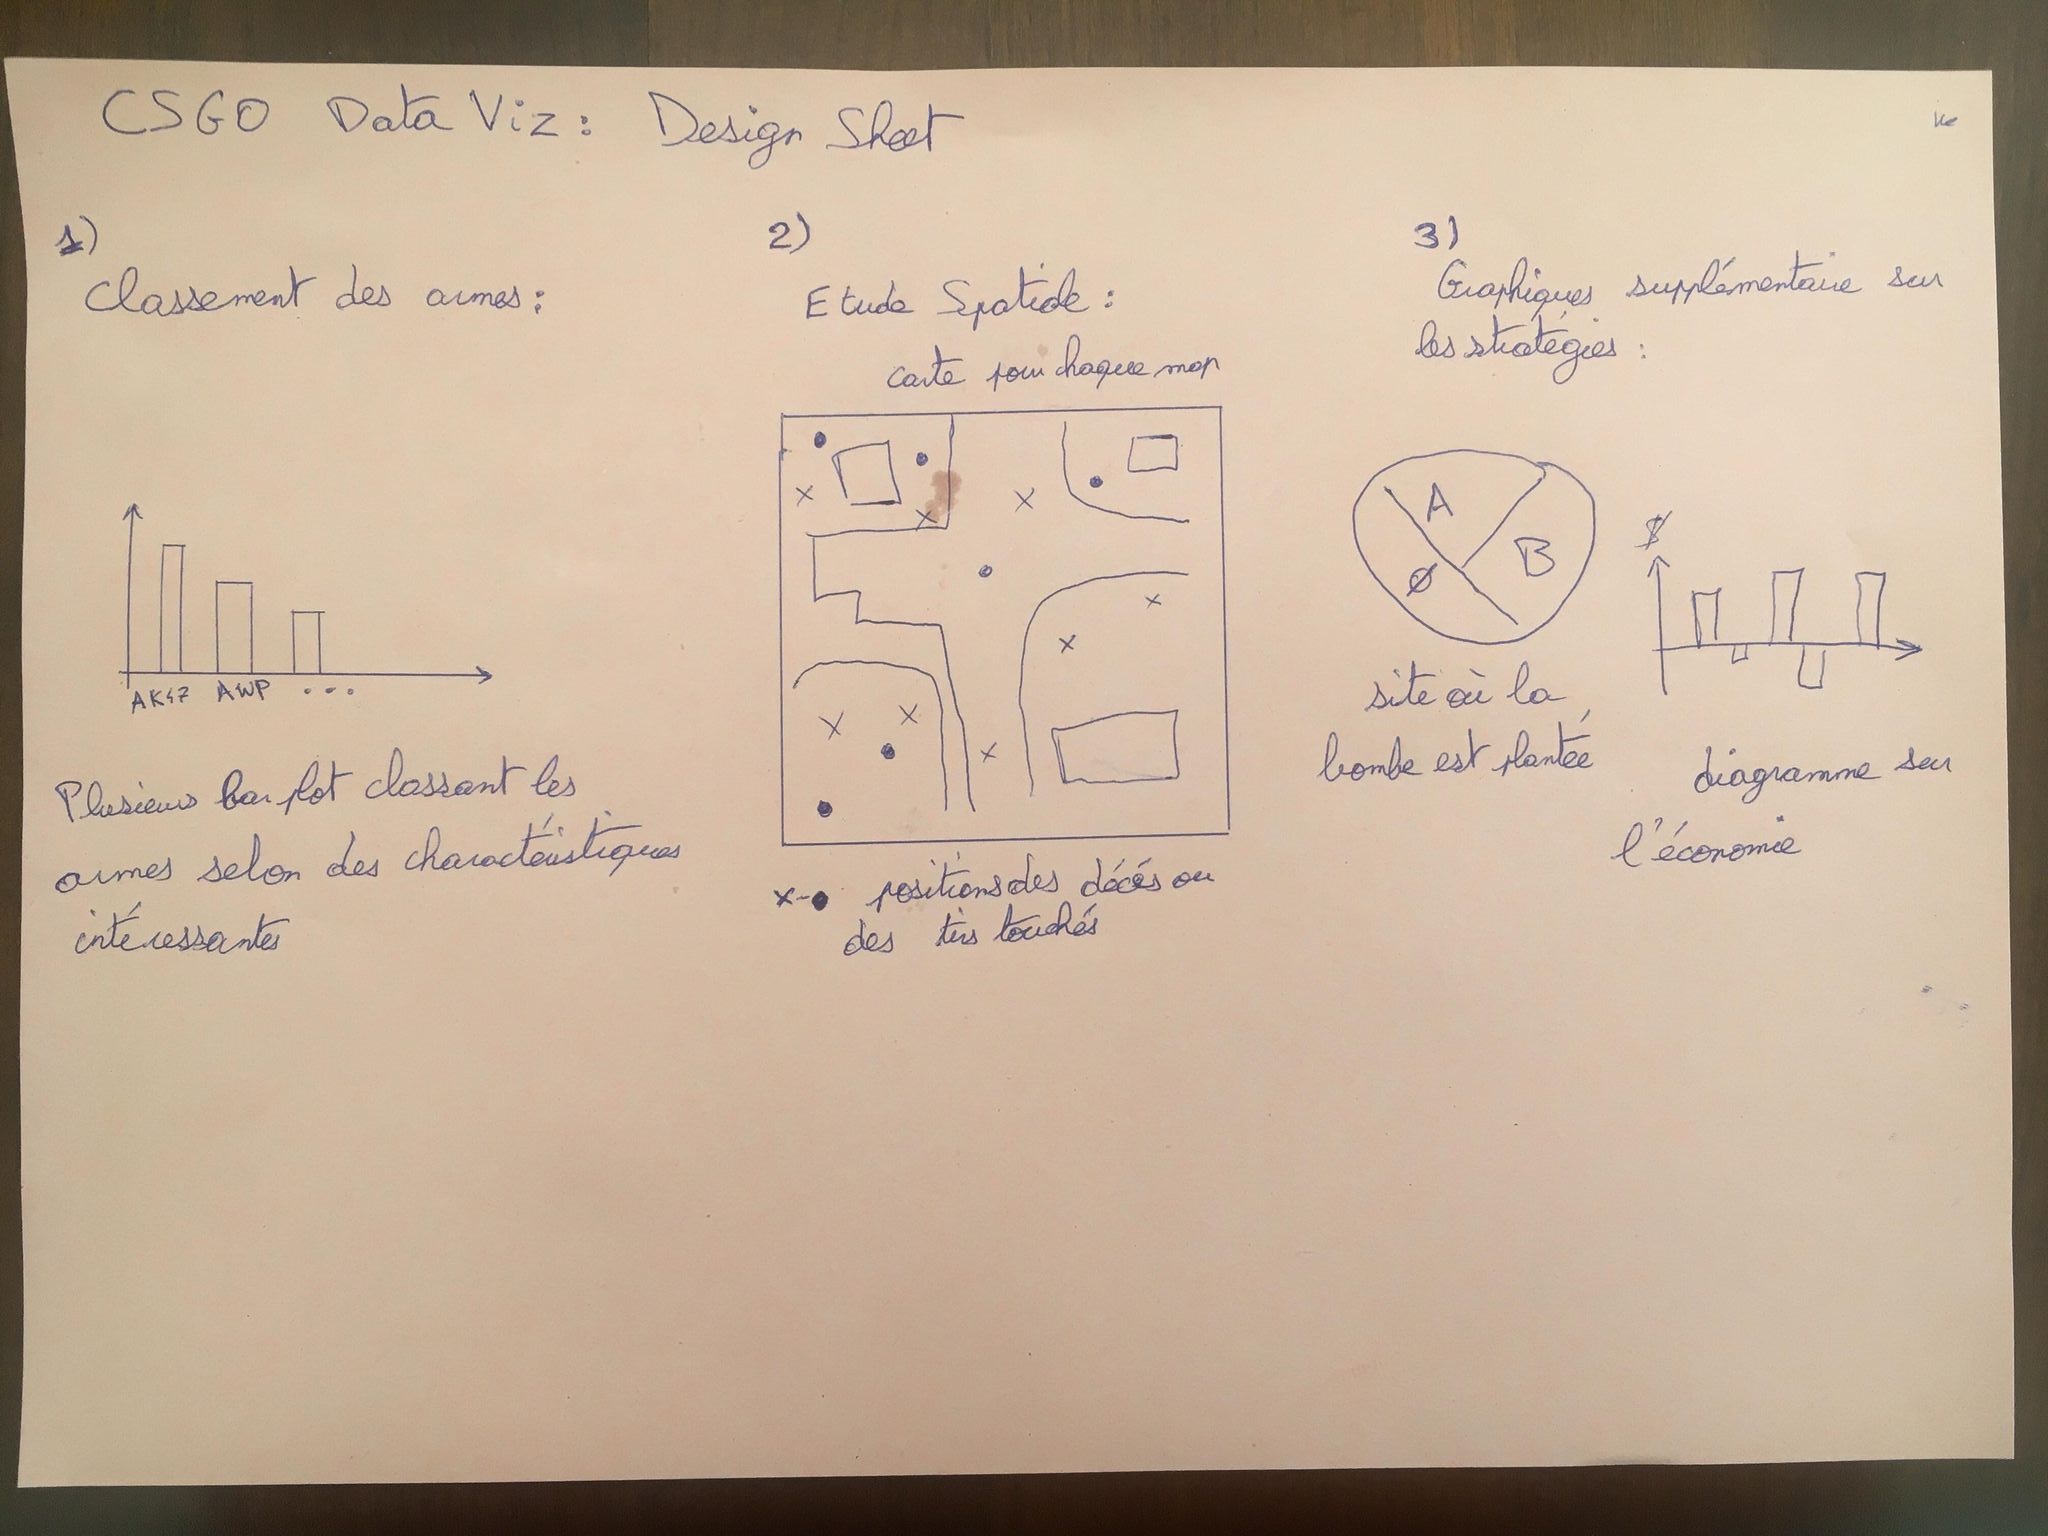 CSGO Data Viz : Design Sheet
1)
Classement des armes :
AK47 AWP ...
Plusieurs bar plot classant les
armes selon des charactéristiques
intéressantes
2)
Etude Spatiale :
carte pour chaque map
x-● positions des décés ou
des tirs touchés
3)
Graphiques supplémentaire sur
les stratégies :
A
B
Ø
site où la
bombe est plantée
$
diagramme sur
l'économie